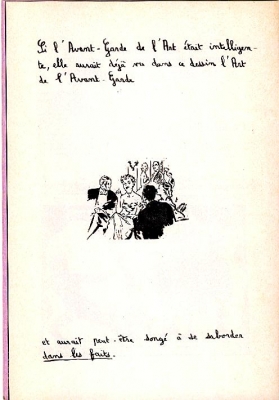 Si l'Avant-Garde de l'Art était intelligen-
te, elle aurait déjà vu dans ce dessin l'Art
de l'Avant-Garde
et aurait peut-être songé à se saborder
dans les faits.